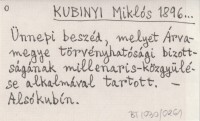 KUBINYI Miklós 1896...
Ünnepi beszéd, melyet Árva-
megye törvényhatósági bizott-
ságának millenaris-közgyülé-
se alkalmával tartott. —
Alsókubin.